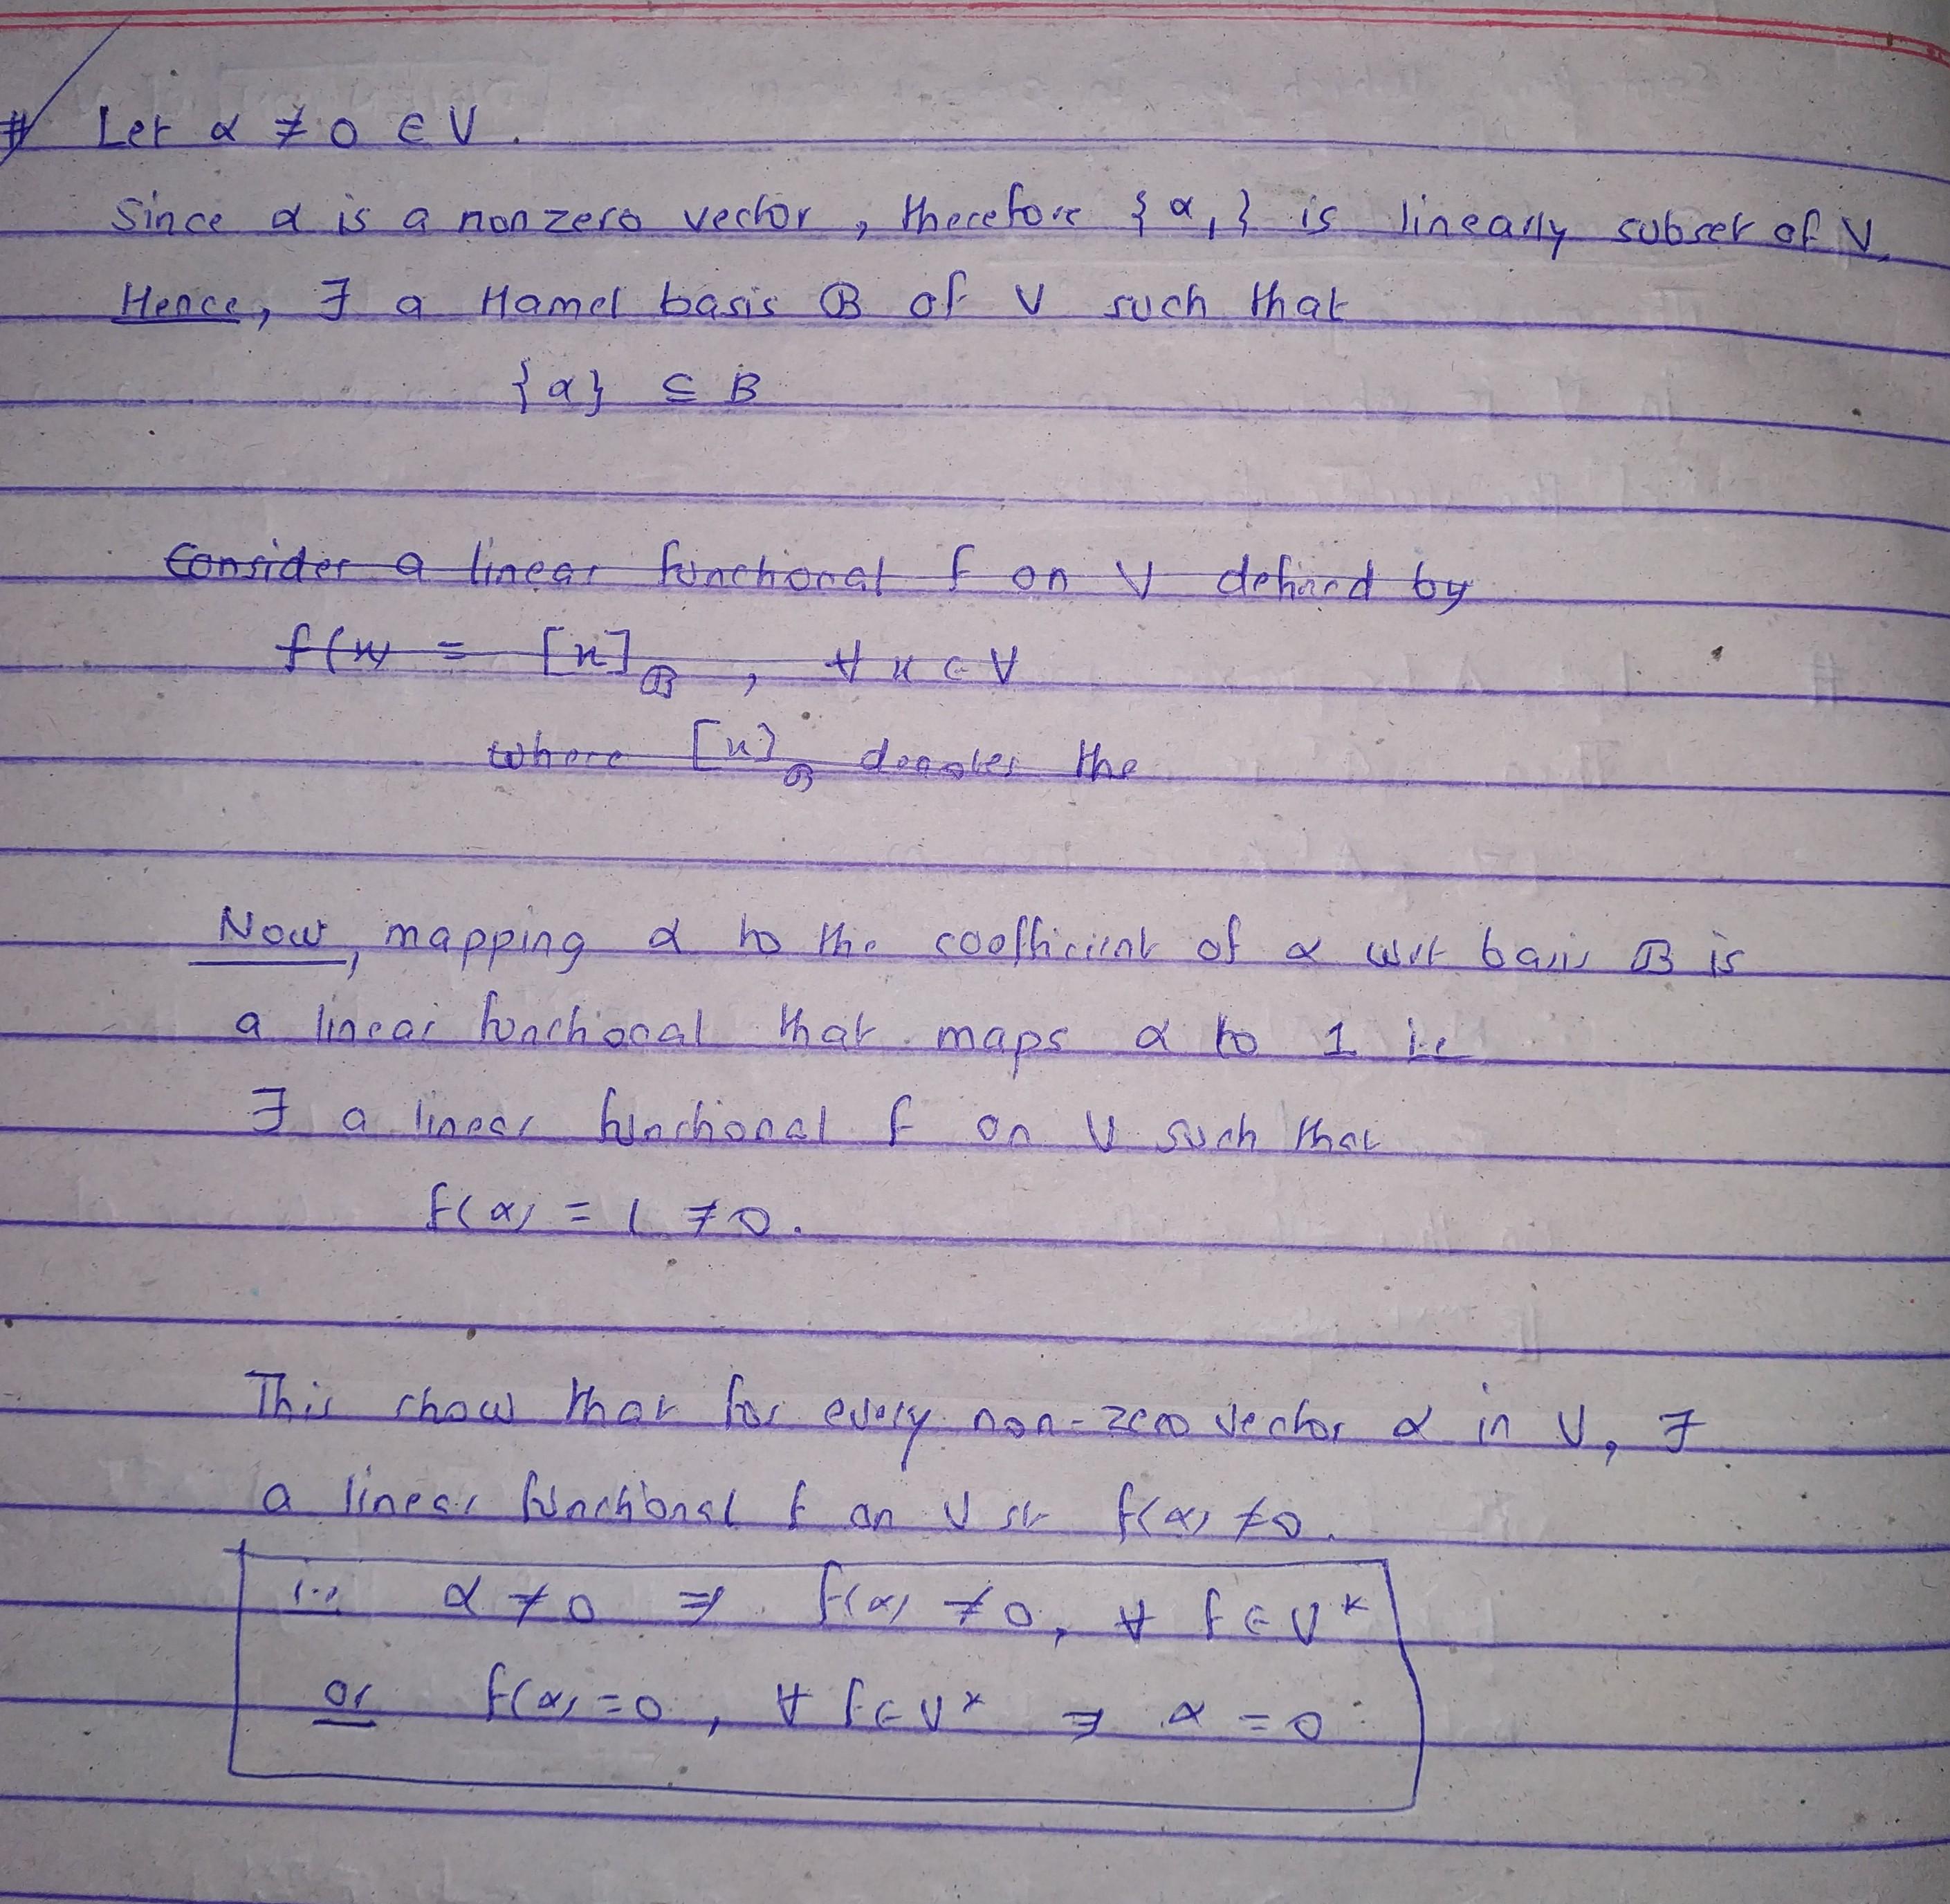 # Let α ≠ 0 ∈ V.
Since α is a nonzero vector, therefore {α,} is linearly subset of V.
Hence, ∃ a Hamel basis B of V such that
{α} ⊆ B
Consider a linear functional f on V defined by
f(x) = [x]_B, ∀ x ∈ V
where [x]_B denotes the
Now, mapping α to the coefficient of α wrt basis B is
a linear functional that maps α to 1 i.e
∃ a linear functional f on V such that
f(α) = 1 ≠ 0.
This show that for every non-zero vector α in V, ∃
a linear functional f on V st f(α) ≠ 0.
i.e α ≠ 0 ⇒ f(α) ≠ 0, ∀ f ∈ V*
or f(α) = 0, ∀ f ∈ V* ⇒ α = 0